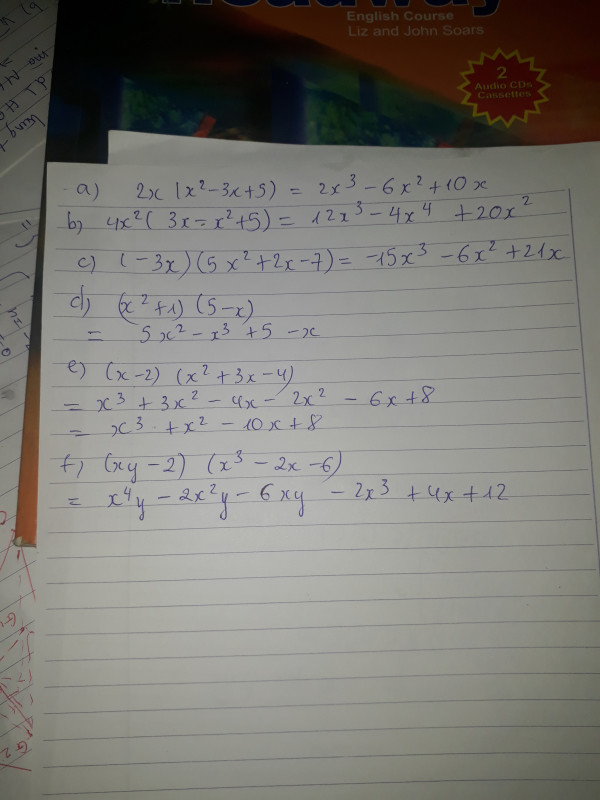 Headway
English Course
Liz and John Soars
2
Audio CDs
Cassettes
a) 2x (x² - 3x + 5) = 2x³ - 6x² + 10x
b) 4x² ( 3x - x² + 5) = 12x³ - 4x⁴ + 20x²
c) (-3x) (5x² + 2x - 7) = -15x³ - 6x² + 21x
d) (x² + 1) (5 - x)
= 5x² - x³ + 5 - x
e) (x - 2) (x² + 3x - 4)
= x³ + 3x² - 4x - 2x² - 6x + 8
= x³ + x² - 10x + 8
f) (xy - 2) (x³ - 2x - 6)
= x⁴y - 2x²y - 6xy - 2x³ + 4x + 12